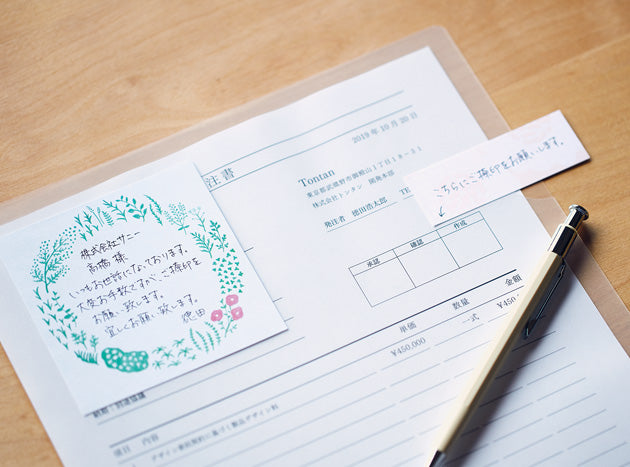 注書
2019年10月20日
Tontan
東京都武蔵野市御殿山1丁目18-11
株式会社トンタン 開発本部
発注者 徳田浩太郎 TE
こちらにご捺印をお願いします。
承認 確認 作成
株式会社サニー
高橋様
いつもお世話になっております。
大変お手数ですが、ご捺印を
お願い致します。
宜しくお願い致します。
徳田
納期:別途協議
項目 内容 単価 数量 金額
デザイン委託契約に基づく製品デザイン料 ¥450,000 一式 ¥450